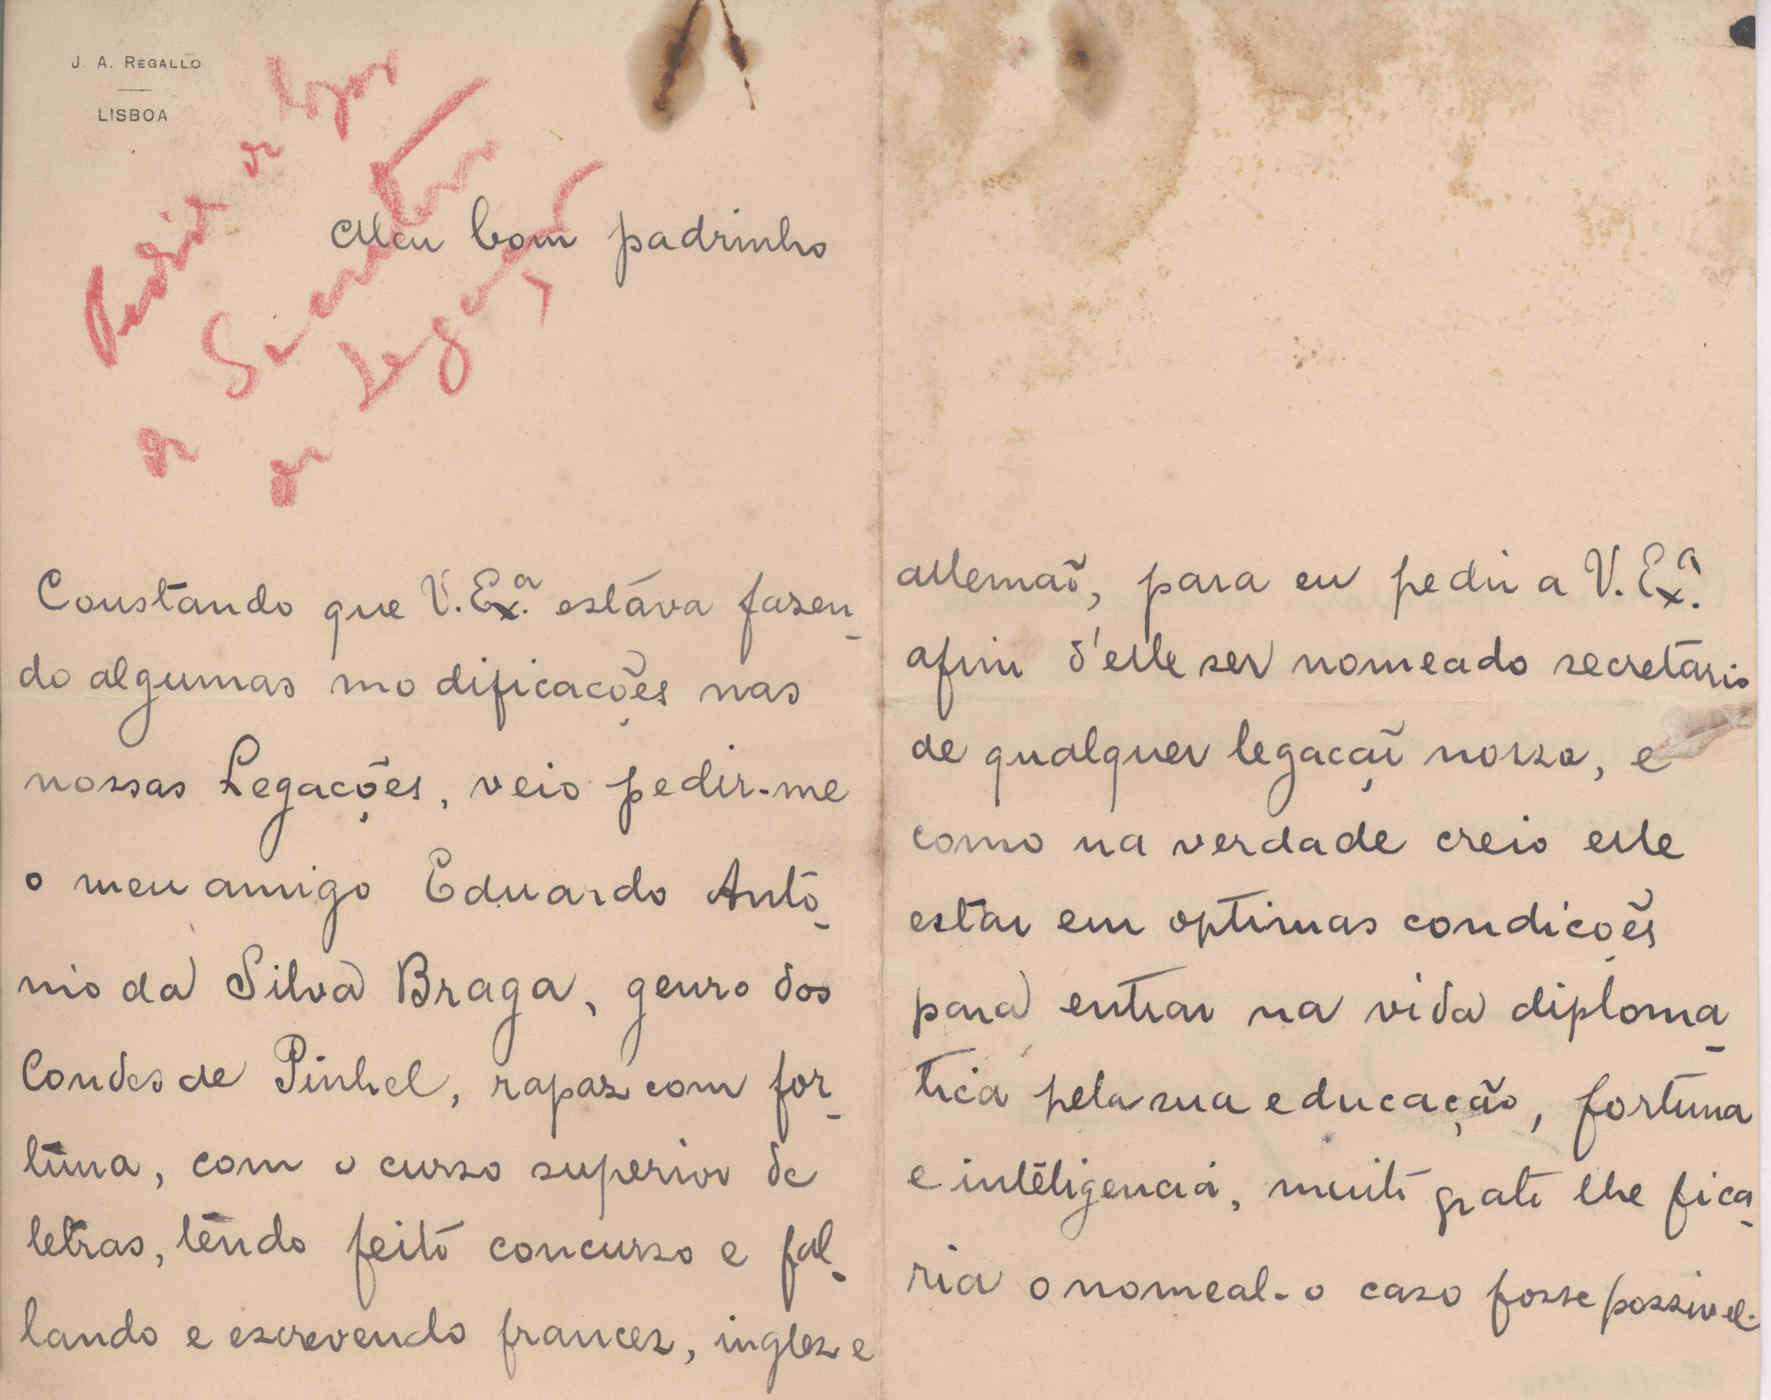 J. A. REGALLO
LISBOA
Pedido de logar
de Secretario
de Legação
Meu bom padrinho
Constando que V. Ex.ª estáva fazen-
do algumas modificações nas
nossas Legações, veio pedir-me
o meu amigo Eduardo Antó-
nio da Silva Braga, genro dos
Condes de Pinhel, rapaz com for-
tuna, com o curso superior de
letras, tendo feito concurso e fal-
lando e escrevendo francez, inglez e
allemaõ, para eu pedir a V. Ex.ª
afim d'elle ser nomeado secretario
de qualquer legaçaõ nossa, e
como na verdade creio elle
estar em optimas condições
para entrar na vida diploma-
tica pela sua educação, fortuna
e inteligencia, muito grato lhe fica-
ria o nomeal-o caso fosse possivel.